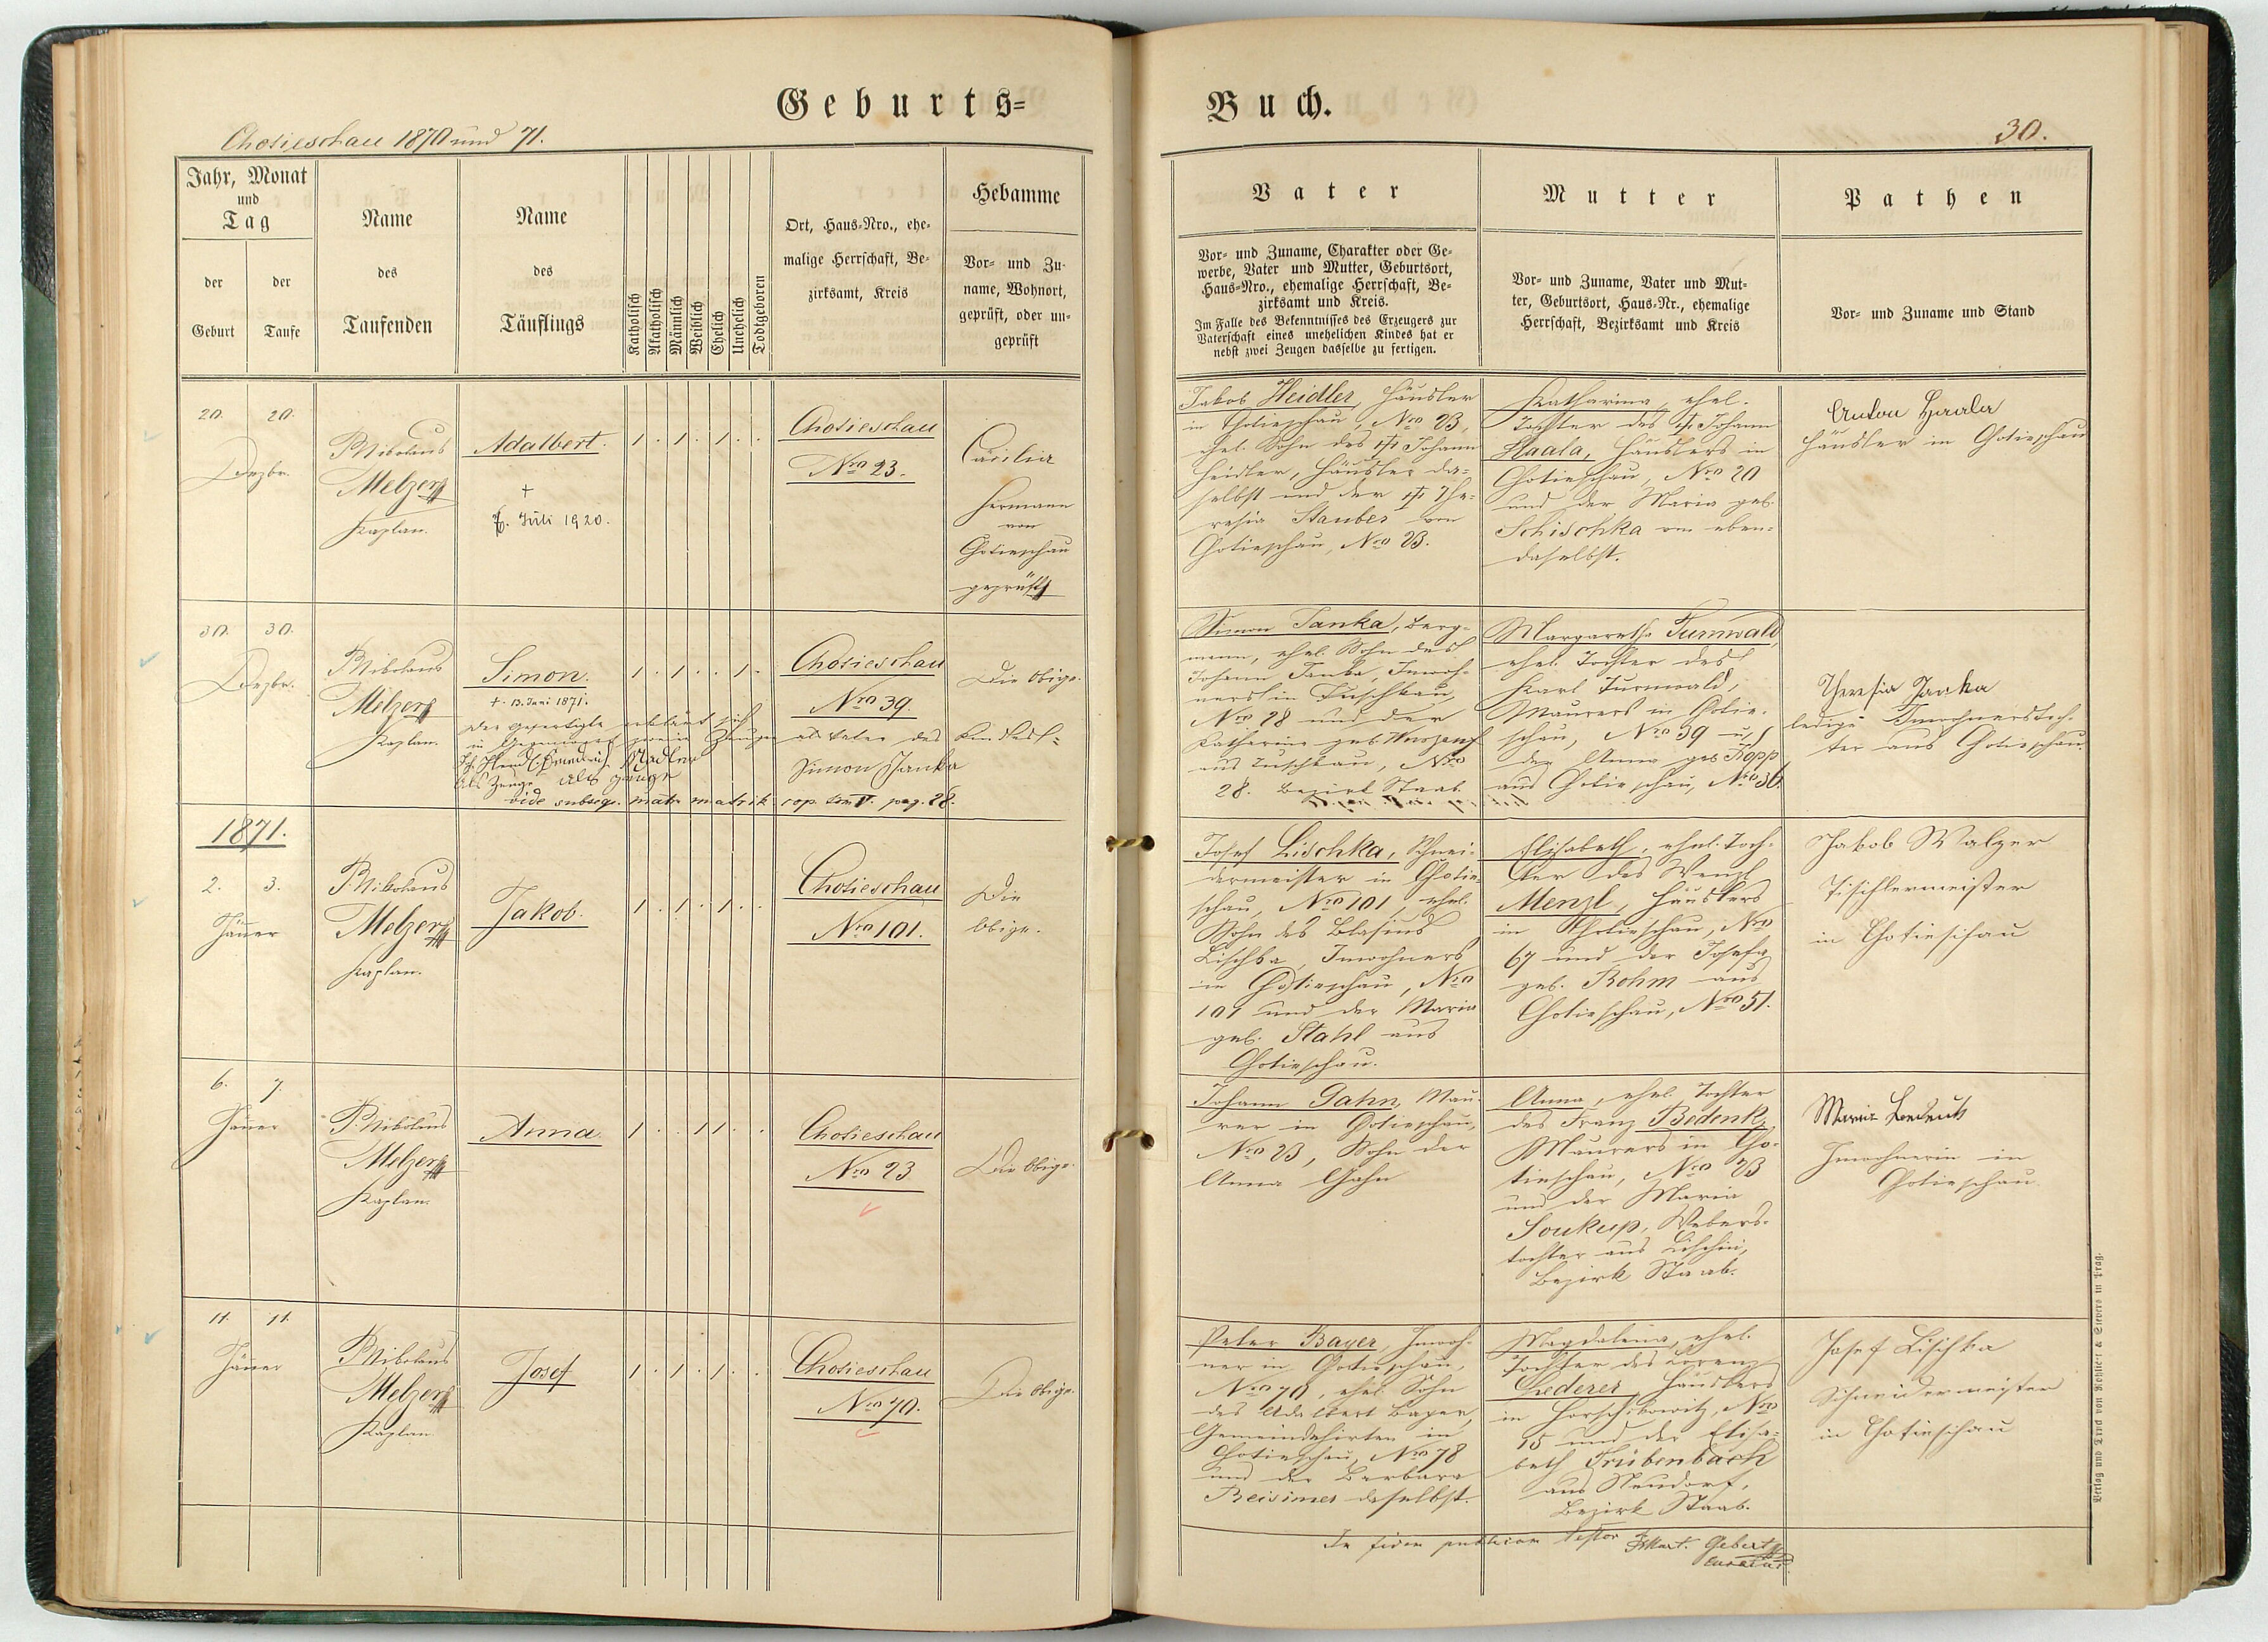 Geburts=
Buch.
Chotieschau 1870 und 71.
30.
Jahr, Monat
und
Tag
der
Geburt
der
Taufe
Name
des
Taufenden
Name
des
Täuflings
Katholisch
Akatholisch
Männlich
Weiblich
Ehelich
Unehelich
Todtgeboren
Ort, Haus-Nro., ehe-
malige Herrschaft, Be-
zirksamt, Kreis
Hebamme
Vor- und Zu-
name, Wohnort,
geprüft, oder un-
geprüft
Vater
Vor- und Zuname, Charakter oder Ge-
werbe, Vater und Mutter, Geburtsort,
Haus-Nro., ehemalige Herrschaft, Be-
zirksamt und Kreis.
Im Falle des Bekenntnisses des Erzeugers zur
Vaterschaft eines unehelichen Kindes hat er
nebst zwei Zeugen dasselbe zu fertigen.
Mutter
Vor- und Zuname, Vater und Mut-
ter, Geburtsort, Haus-Nr., ehemalige
Herrschaft, Bezirksamt und Kreis
Pathen
Vor- und Zuname und Stand
20. 20.
Dezbr.
P. Nikolaus
Melzer
Kaplan.
Adalbert.
+
6. Juli 1920.
1 . 1 . 1 . .
Chotieschau
Nro 23.
Cäcilia
Hermann
von
Chotieschau
geprüft
Jakob Heidler, Häusler
in Chotieschau, Nro 23,
ehel. Sohn des Johann
Heidler, Häusler da-
selbst und der The-
resia Stauber von
Chotieschau, Nro 23.
Katharina, ehel.
Tochter des Johann
Haala, Häuslers in
Chotieschau, Nro 20
und der Maria geb.
Schischka von eben-
daselbst.
Anton Haala
Häusler in Chotieschau
30. 30.
Dezbr.
P. Nikolaus
Melzer
Kaplan.
Simon.
+. 13. Juni 1871.
1 . 1 . . 1 .
Chotieschau
Nro 39.
Die Obige.
Der Gefertigte erklärt sich
in Gegenwart zweier Zeugen als Vater des Kindes
Simon Janka
als Zeuge als Zeuge
vide subseq. matr. matrik cop. tom V. pag. 28.
Simon Janka, Berg-
mann, ehel. Sohn des
Johann Janka, Inwoh-
ners in Tuschkau,
Nro 28 und der
Katharina geb.
aus Tuschkau, Nro
28. Bezirk Staab.
Margaretha Turnwald,
ehel. Tochter des
Karl Turnwald,
Maurers in Chotie-
schau, Nro 39 u.
der Anna geb. Popp
aus Chotieschau, Nro 36.
Theresia Janka
ledige Inwohnerstoch-
ter aus Chotieschau.
1871.
2. 3.
Jänner
P. Nikolaus
Melzer
Kaplan.
Jakob.
1 . 1 . 1 . .
Chotieschau
Nro 101.
Die
Obige.
Josef Lischka, Schnei-
dermeister in Chotie-
schau, Nro 101, ehel.
Sohn des Blasius
Lischka, Inwohners
in Chotieschau, Nro
101 und der Maria
geb. Stahl aus
Chotieschau.
Elisabeth, ehel. Toch-
ter des Wenzl
Menzl, Häuslers
in Chotieschau, Nro
67 und der Josefa
geb. Böhm aus
Chotieschau, Nro 51.
Jakob Walzer
Tischlermeister
in Chotieschau
6. 7.
Jänner
P. Nikolaus
Melzer
Kaplan.
Anna.
1 . . 1 1 . .
Chotieschau
Nro 23
Die Obige.
Johann Gahn, Mau-
rer in Chotieschau,
Nro 23, Sohn der
Anna Gahn
Anna, ehel. Tochter
des Franz Bedenk,
Maurers in Cho-
tieschau, Nro 23
und der Maria
Soukup, Webers-
tochter aus Lischin,
Bezirk Staab.
Maria Bedenk
Inwohnerin in
Chotieschau.
11. 11.
Jänner
P. Nikolaus
Melzer
Kaplan.
Josef
1 . 1 . 1 . .
Chotieschau
Nro 70.
Die Obige.
Peter Bayer, Inwoh-
ner in Chotieschau,
Nro 70, ehel. Sohn
des Adalbert Bayer,
Gemeindehirten in
Chotieschau, Nro 78
und der Barbara
Reisimer daselbst.
Magdalena, ehel.
Tochter des Lorenz
Lederer, Häuslers
in Horschikowitz, Nro
15 und der Elisa-
beth Trübenbach
aus Neudorf,
Bezirk Staab.
Josef Lischka
Schneidermeister
in Chotieschau
In fidem publicam testor Mart. Gebert
Curatus.
Verlag und Druck von Kohlicek & Sievers in Prag.